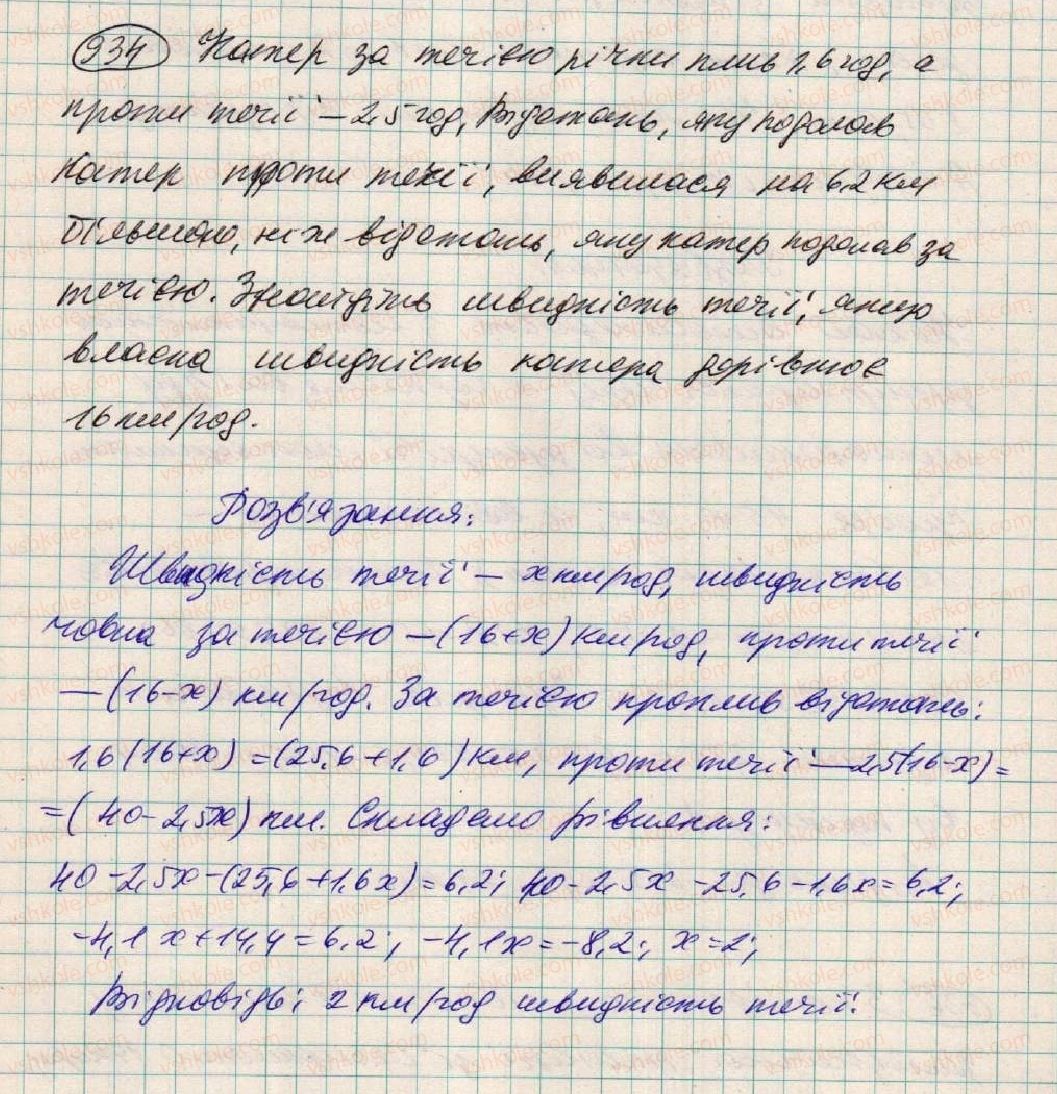 934 Катер за течією річки плив 1,6 год, а
проти течії – 2,5 год, Відстань, яку подолав
катер проти течії, виявилася на 6,2 км
більшою, ніж відстань, яку катер подолав за
течією. Знайдіть швидкість течії, якщо
власна швидкість катера дорівнює
16 км/год.
Розв'язання:
Швидкість течії – х км/год, швидкість
човна за течією – (16+х) км/год, проти течії
– (16-х) км/год. За течією проплив відстань:
1,6(16+х) = (25,6+1,6) км, проти течії – 2,5(16-х) =
= (40-2,5х) км. Складемо рівняння:
40-2,5х-(25,6+1,6х)=6,2; 40-2,5х-25,6-1,6х=6,2;
-4,1х+14,4=6,2; -4,1х=-8,2; х=2;
Відповідь: 2 км/год швидкість течії.